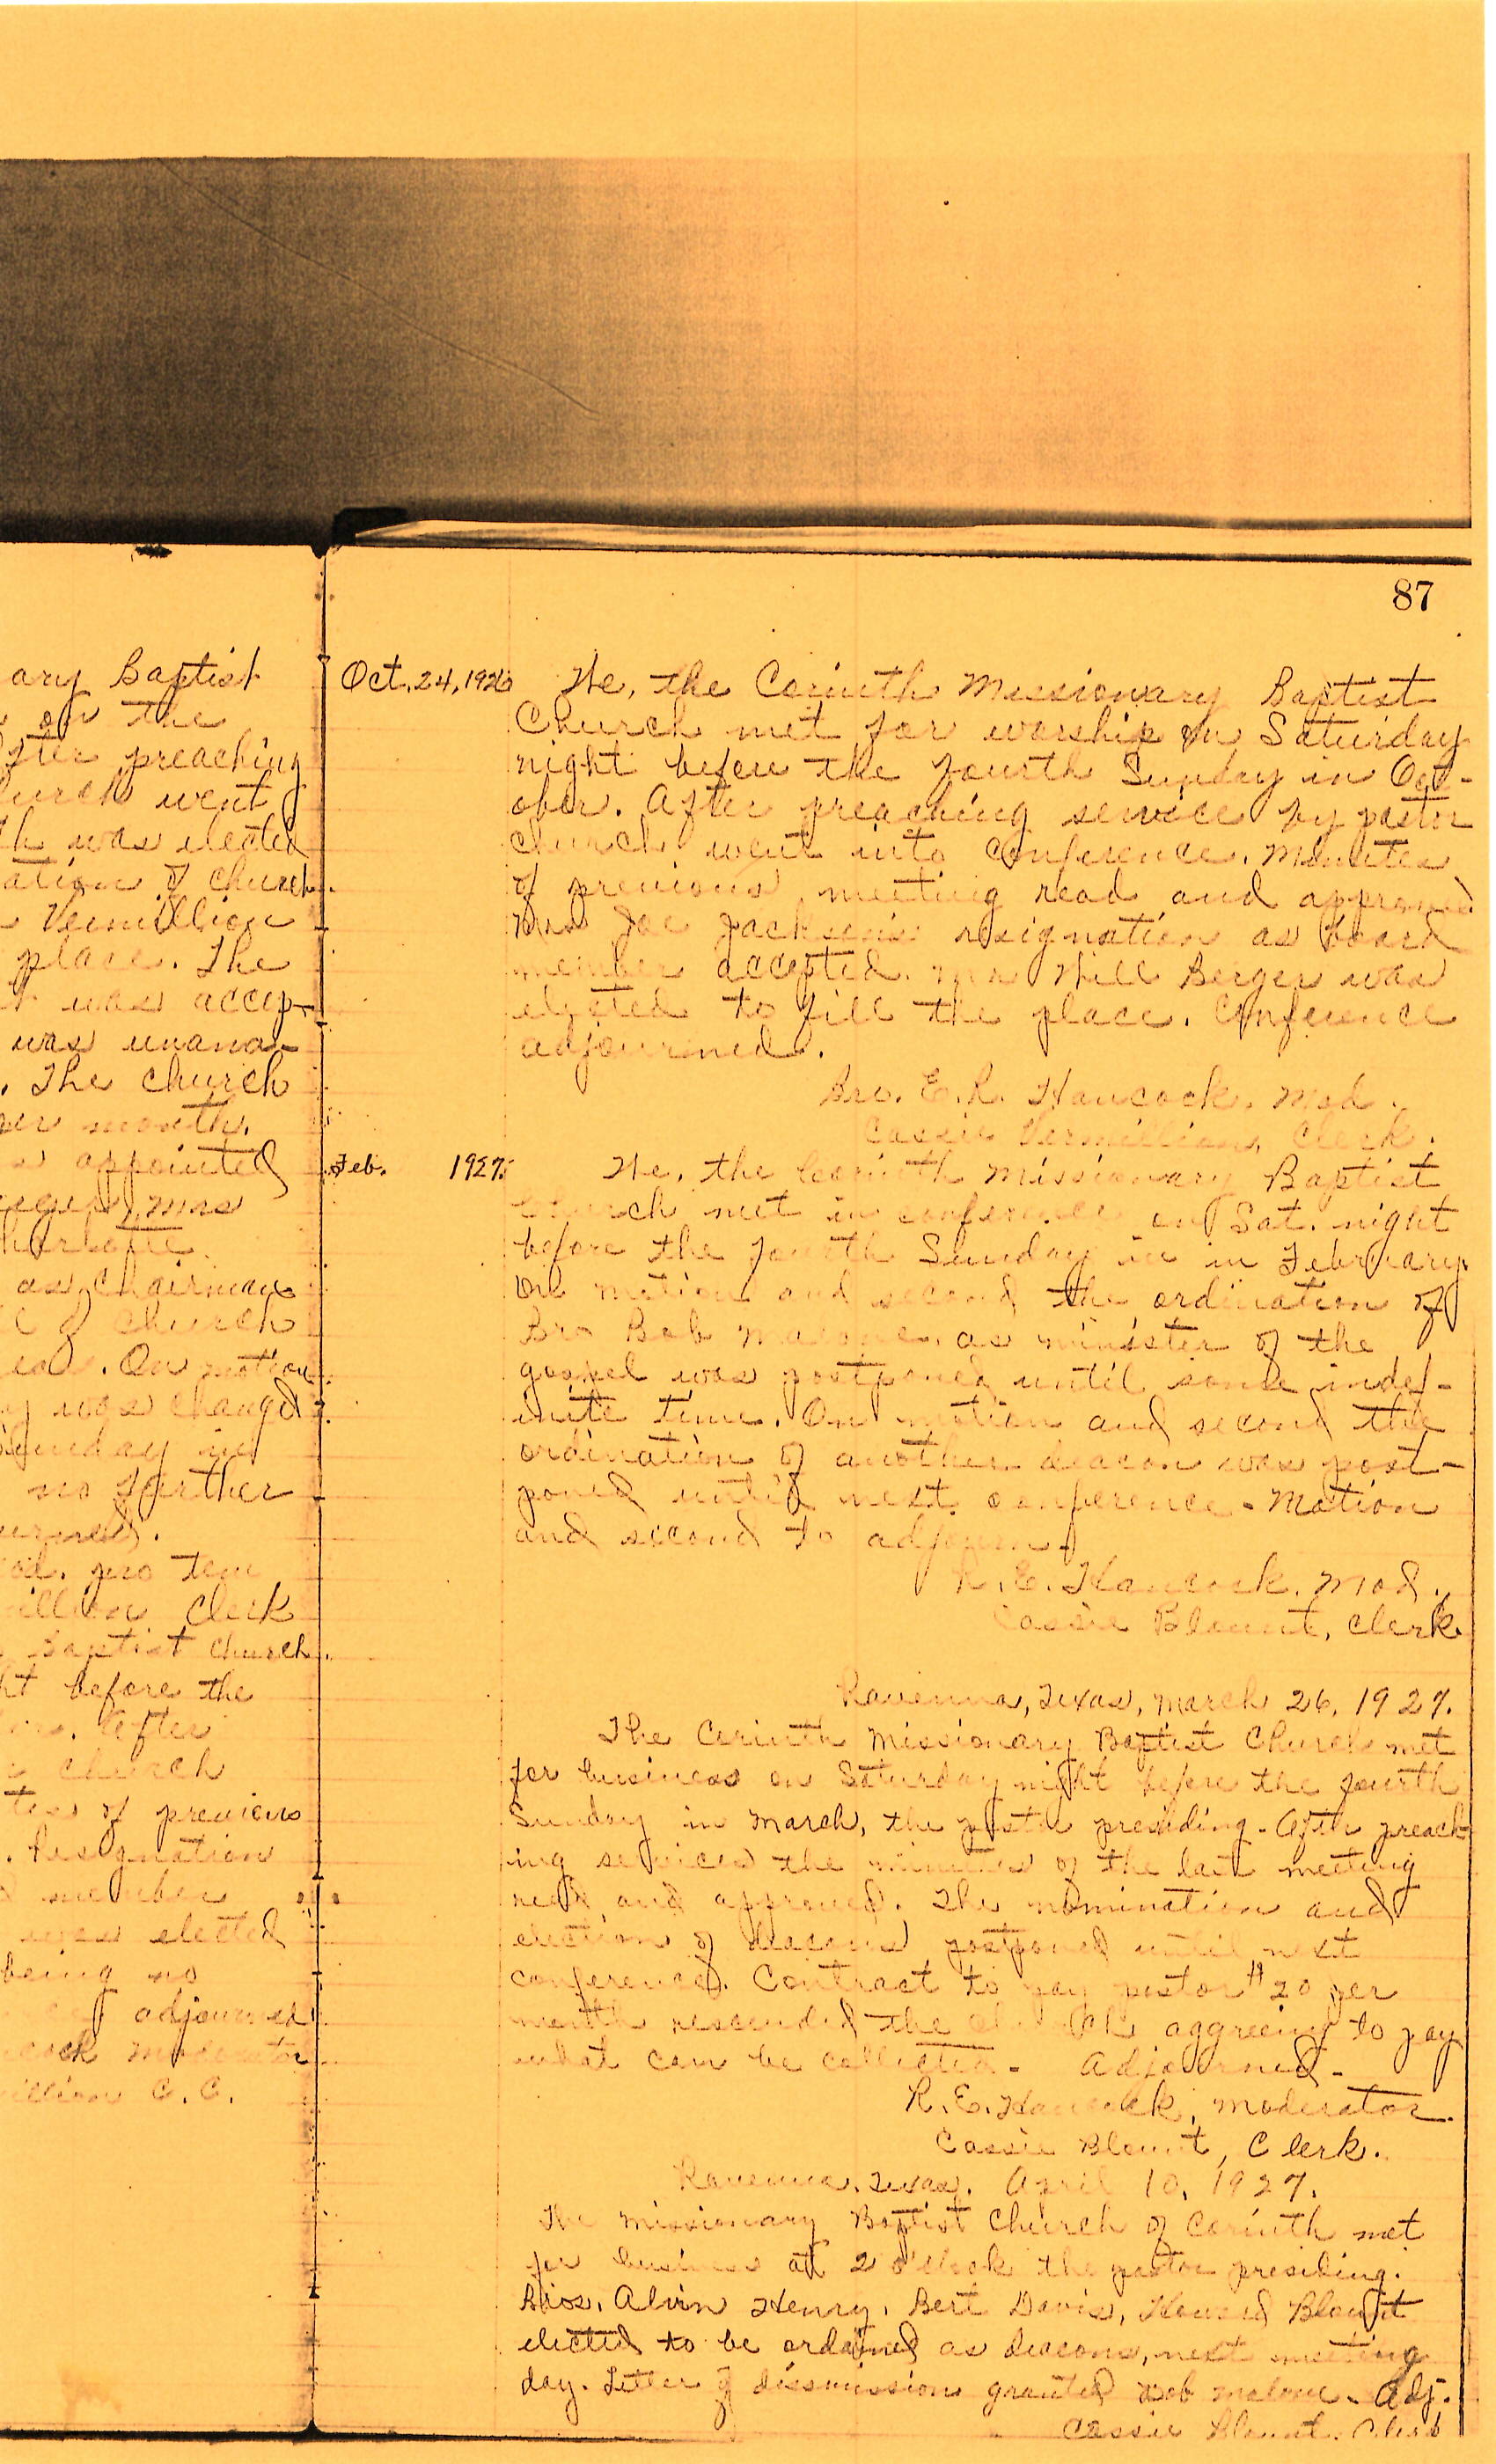 87
ary Baptist
on the
fter preaching
urch went
th was elected
ation of church.
Vermillion
place. The
was accep-
was unana-
. The church
per month.
appointed
Mrs
as chairman
of Church
. On motion
was changed
Sunday in
no further
urned.
od. pro tem
illion Clerk
Baptist Church.
ht before the
. After
church
tes of previous
. Resignation
d member
was elected
being no
adjourned
cock Moderator
illion C. C.
Oct. 24, 1926 We, the Corinth Missionary Baptist
Church met for worship on Saturday
night before the fourth Sunday in Oct-
ober. After preaching service by pastor
church went into Conference. Minutes
of previous meeting read and approved
Mrs Joe Jackson's resignation as board
member accepted. Mrs Will Berger was
elected to fill the place. Conference
adjourned.
Bro. E. R. Hancock. Mod.
Cassie Vermillion, Clerk.
Feb. 1927. We, the Corinth Missionary Baptist
Church met in conference on Sat. night
before the fourth Sunday in in February.
On motion and second the ordination of
Bro Bob Malone, as minister of the
gospel was postponed until some indef-
inite time. On motion and second the
ordination of another deacon was post-
poned until next conference - Motion
and second to adjourn -
R. E. Hancock. Mod.,
Cassie Blount, Clerk.
Ravenna, Texas, March 26, 1927.
The Corinth Missionary Baptist Church met
for business on Saturday night before the fourth
Sunday in March, the pastor presiding - After preach-
ing services the minutes of the last meeting
read and approved. The nomination and
election of deacons postponed until next
conference. Contract to pay pastor $20 per
month rescended the church aggreeing to pay
what can be collected - Adjourned -
R. E. Hancock, Moderator.
Cassie Blount, Clerk.
Ravenna, Texas. April 10, 1927.
The Missionary Baptist Church of Corinth met
for business at 2 o'clock the pastor presiding.
Bros. Alvin Henry, Bert Davis, Howard Blount
elected to be ordained as deacons, next meeting
day. Letter of dissmission granted Bob Malone - Adj.
Cassie Blount, Clerk